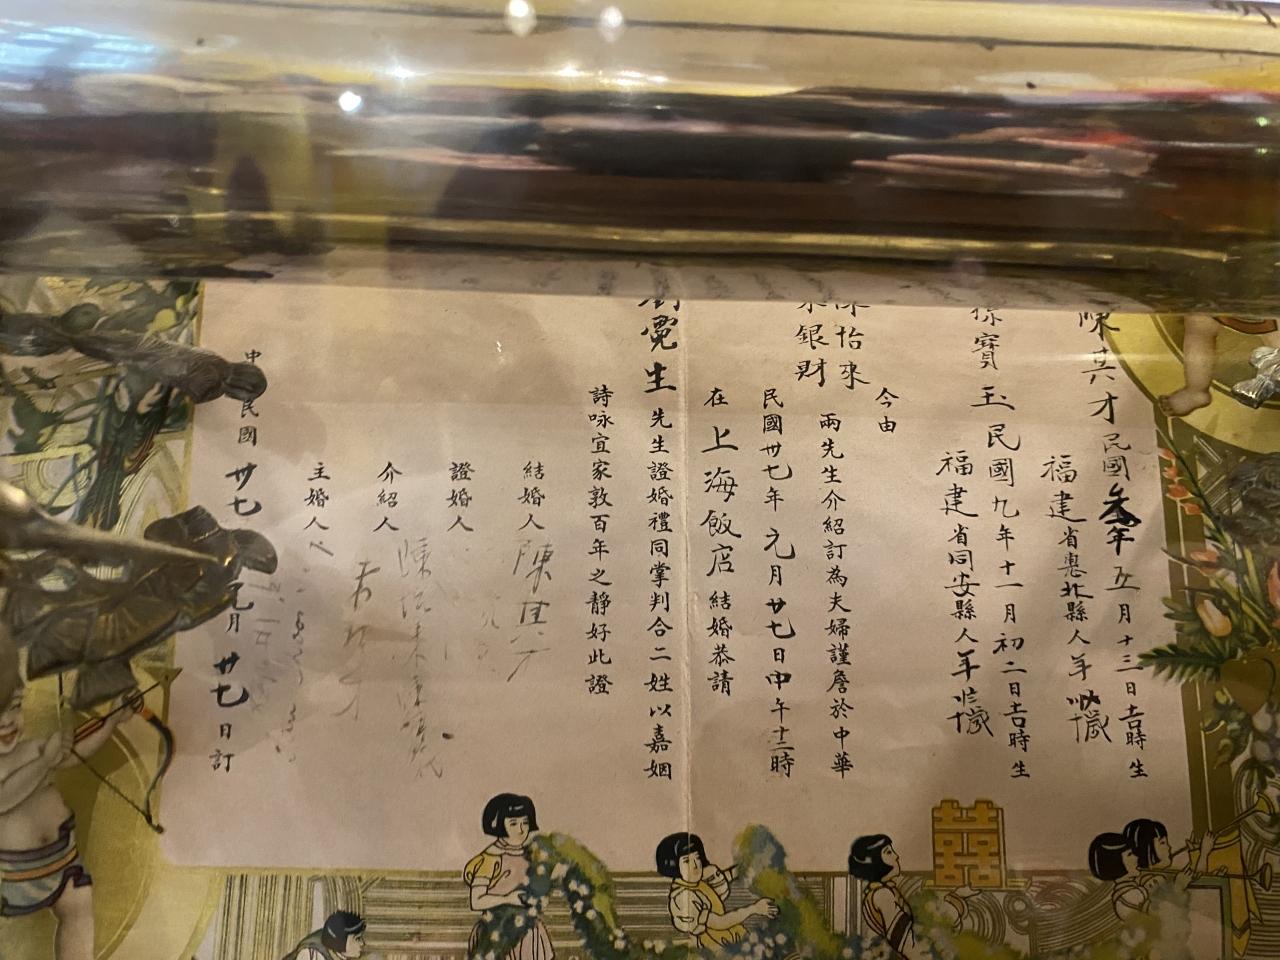 陳其才民國叁年五月十三日吉時生
福建省惠北縣人年
孫寶玉民國九年十一月初二日吉時生
福建省同安縣人年
今由
陳怡來
銀財
兩先生介紹訂為夫婦謹詹於中華
民國卅七年元月廿七日中午十二時
在上海飯店結婚恭請
生先生證婚禮同掌判合二姓以嘉姻
詩咏宜家敦百年之靜好此證
結婚人陳其才
證婚人
介紹人陳
主婚人
中 民國卅七 元月廿七日訂
囍